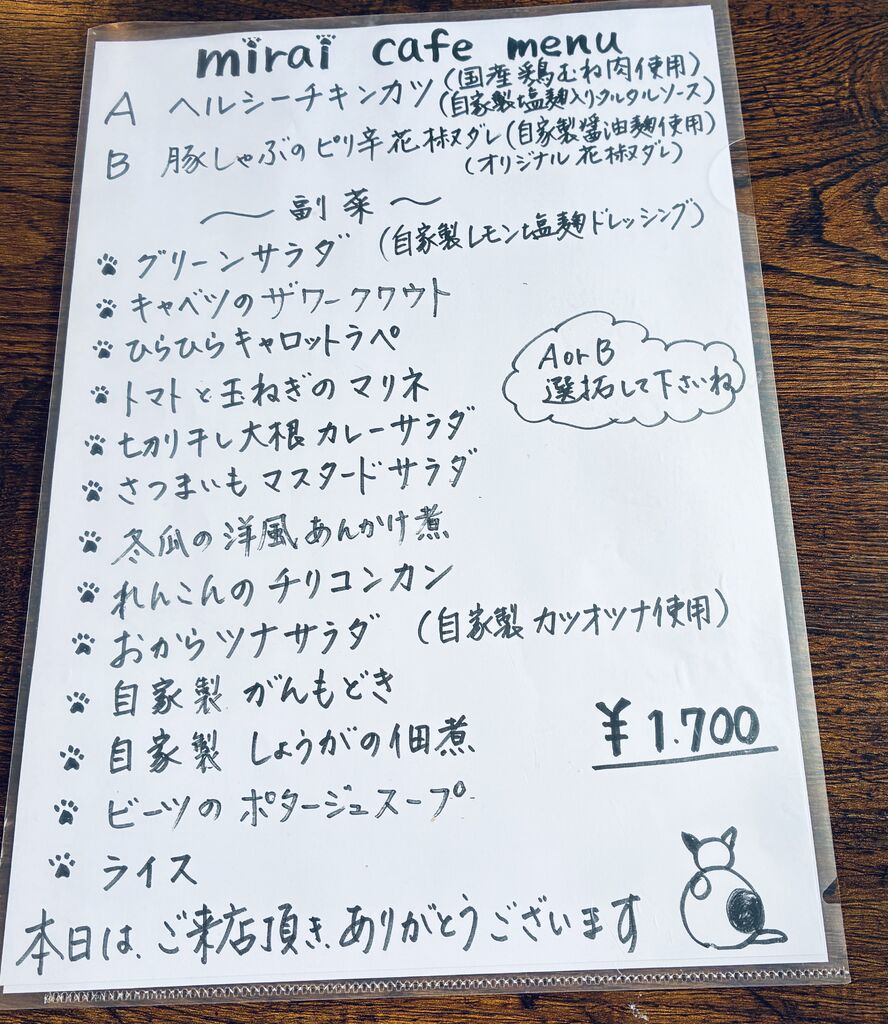 mirai cafe menu
A ヘルシーチキンカツ(国産鶏むね肉使用)
(自家製塩麹入りタルタルソース)
B 豚しゃぶのピリ辛花椒ダレ(自家製醤油麹使用)
(オリジナル花椒ダレ)
〜副菜〜
グリーンサラダ (自家製レモン塩麹ドレッシング)
キャベツのザワークワウト
ひらひらキャロットラペ
A or B
選択して下さいね
トマトと玉ねぎのマリネ
切り干し大根カレーサラダ
さつまいもマスタードサラダ
冬瓜の洋風あんかけ煮
れんこんのチリコンカン
おからツナサラダ (自家製カツオツナ使用)
自家製 がんもどき
自家製 しょうがの佃煮
¥1.700
ビーツのポタージュスープ
ライス
本日は、ご来店頂き、ありがとうございます